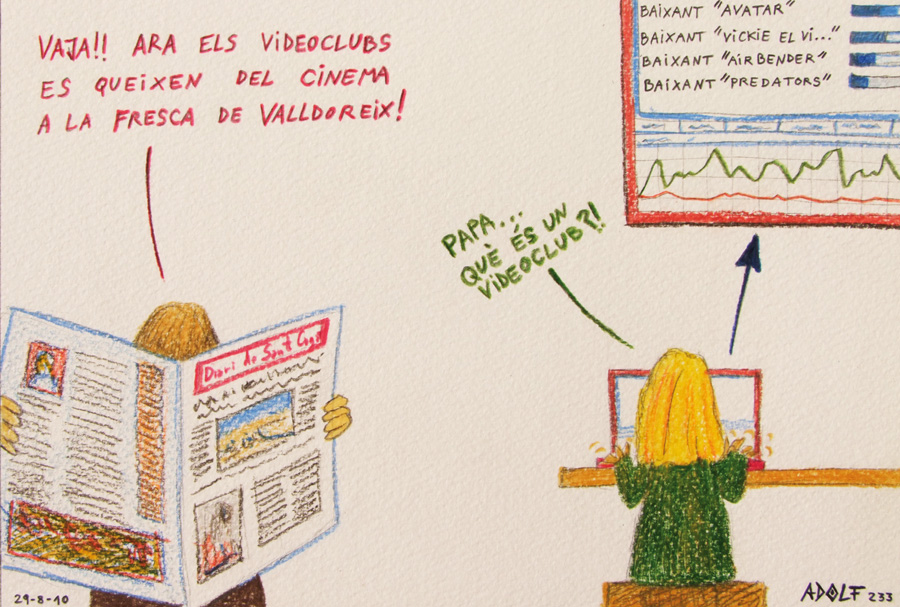 VAJA!! ARA ELS VIDEOCLUBS
ES QUEIXEN DEL CINEMA
A LA FRESCA DE VALLDOREIX!
BAIXANT "AVATAR"
BAIXANT "VICKIE EL VI..."
BAIXANT "AIRBENDER"
BAIXANT "PREDATORS"
PAPA...
QUÈ ÉS UN
VIDEOCLUB?!
Diari de Sant Cugat
29-8-10
ADOLF 233